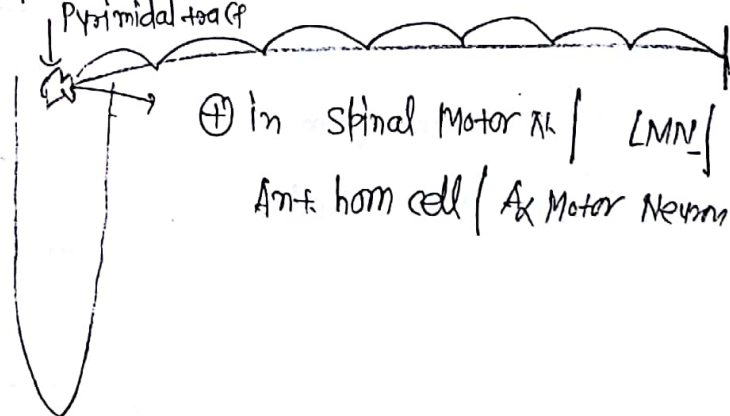 Pyrimidal tract
⊕ in Spinal Motor N. | LMN |
Ant. horn cell | Aα Motor Neuron